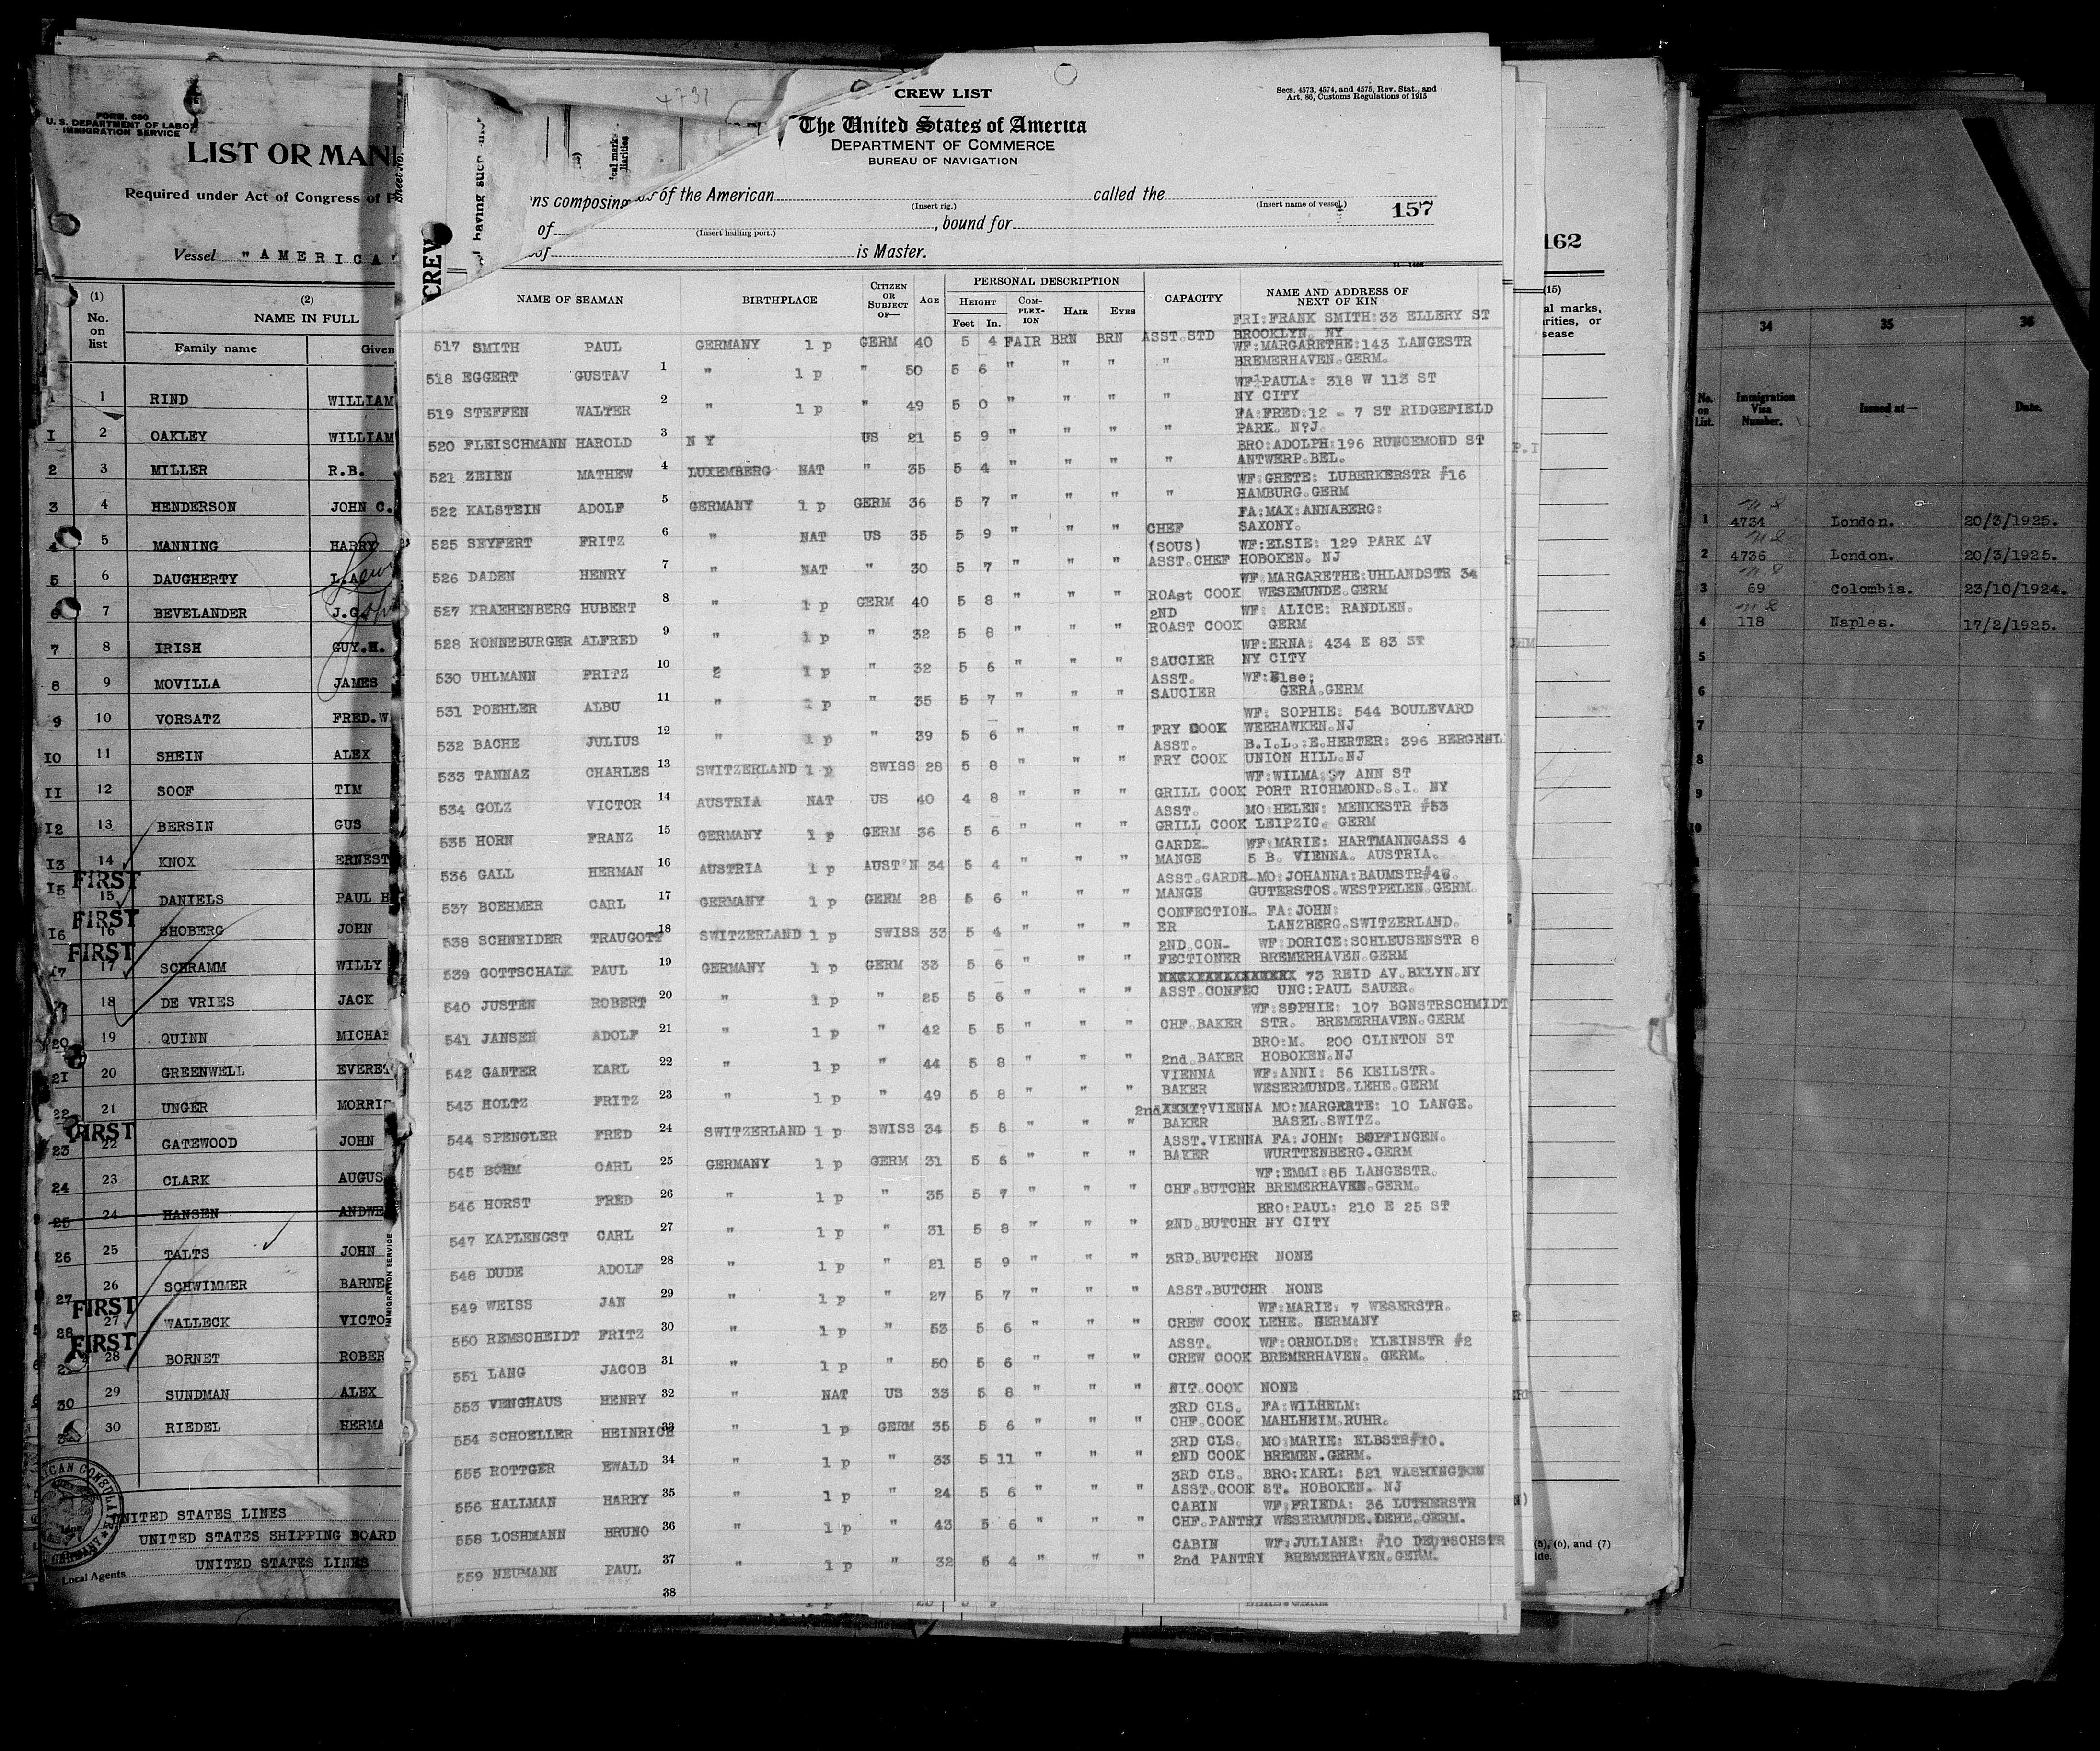 FORM. 680
U. S. DEPARTMENT OF LABOR
IMMIGRATION SERVICE
LIST OR MANI
Required under Act of Congress of F
Vessel "AMERICA"
(1) (2)
No. on list NAME IN FULL
Family name Given
1 RIND WILLIAM
1 2 OAKLEY WILLIAM
2 3 MILLER R.B.
3 4 HENDERSON JOHN C.
4 5 MANNING HARRY
5 6 DAUGHERTY L.A.
6 7 BEVELANDER J.G.
7 8 IRISH GUY.H.
8 9 MOVILLA JAMES
9 10 VORSATZ FRED.W
10 11 SHEIN ALEX
11 12 SOOF TIM
12 13 BERSIN GUS
13 14 KNOX ERNEST
FIRST
15 15 DANIELS PAUL H
FIRST
16 16 SHOBERG JOHN
FIRST
17 17 SCHRAMM WILLY
18 DE VRIES JACK
20 19 QUINN MICHAE
21 20 GREENWELL EVERET
22 21 UNGER MORRIS
FIRST
23 22 GATEWOOD JOHN
24 23 CLARK AUGUS
25 24 HANSEN ANDWE
26 25 TALTS JOHN
27 26 SCHWIMMER BARNE
FIRST
28 27 WALLECK VICTO
FIRST
28 BORNET ROBER
30 29 SUNDMAN ALEX
30 RIEDEL HERMA
UNITED STATES LINES
UNITED STATES SHIPPING BOARD
UNITED STATES LINES
Local Agents
IMMIGRATION SERVICE
CREW
4731
CREW LIST
Secs. 4573, 4574, and 4575, Rev. Stat., and
Art. 86, Customs Regulations of 1915
The United States of America
DEPARTMENT OF COMMERCE
BUREAU OF NAVIGATION
ns composing of the American called the
(Insert rig.) (Insert name of vessel.)
157
of , bound for
(Insert hailing port.)
of is Master.
NAME OF SEAMAN BIRTHPLACE CITIZEN OR SUBJECT OF— AGE PERSONAL DESCRIPTION CAPACITY NAME AND ADDRESS OF NEXT OF KIN
HEIGHT COMPLEXION HAIR EYES
Feet In.
517 SMITH PAUL GERMANY 1 p GERM 40 5 4 FAIR BRN BRN ASST.STD FRI:FRANK SMITH:33 ELLERY ST BROOKLYN. NY
518 EGGERT GUSTAV 1 " 1 p " 50 5 6 " " " " WF:MARGARETHE:143 LANGESTR BREMERHAVEN.GERM.
519 STEFFEN WALTER 2 " 1 p " 49 5 0 " " " " WF:PAULA: 318 W 113 ST NY CITY
520 FLEISCHMANN HAROLD 3 N Y US 21 5 9 " " " " FA:FRED:12 - 7 ST RIDGEFIELD PARK. N?J.
521 ZEIEN MATHEW 4 LUXEMBERG NAT " 35 5 4 " " " " BRO:ADOLPH:196 RUNGEMOND ST ANTWERP.BEL.
522 KALSTEIN ADOLF 5 GERMANY 1 p GERM 36 5 7 " " " " WF:GRETE: LUBERKERSTR #16 HAMBURG.GERM
525 SEYFERT FRITZ 6 " NAT US 35 5 9 " " " CHEF (SOUS) FA:MAX:ANNABERG: SAXONY.
526 DADEN HENRY 7 " NAT " 30 5 7 " " " ASST.CHEF WF:ELSIE: 129 PARK AV HOBOKEN. NJ
527 KRAEHENBERG HUBERT 8 " 1 p GERM 40 5 8 " " " ROAst COOK WF:MARGARETHE:UHLANDSTR 34 WESEMUNDE.GERM
528 RONNEBURGER ALFRED 9 " 1 p " 32 5 8 " " " 2ND ROAST COOK WF: ALICE: RANDLEN. GERM
530 UHLMANN FRITZ 10 2 1 p " 32 5 6 " " " SAUCIER WF:ERNA: 434 E 83 ST NY CITY
531 POEHLER ALBU 11 " 1 p " 35 5 7 " " " ASST. SAUCIER WF:Else; GERA.GERM
532 BACHE JULIUS 12 " 1 p " 39 5 6 " " " FRY COOK WF: SOPHIE: 544 BOULEVARD WEEHAWKEN.NJ
533 TANNAZ CHARLES 13 SWITZERLAND 1 p SWISS 28 5 8 " " " ASST. FRY COOK B.I.L.:E.HERTER: 396 BERGENL UNION HILL.NJ
534 GOLZ VICTOR 14 AUSTRIA NAT US 40 4 8 " " " GRILL COOK WF:WILMA:37 ANN ST PORT RICHMOND.S.I. NY
535 HORN FRANZ 15 GERMANY 1 p GERM 36 5 6 " " " ASST. GRILL COOK MO:HELEN: MENKESTR #53 LEIPZIG. GERM
536 GALL HERMAN 16 AUSTRIA 1 p AUST'N 34 5 4 " " " GARDE- MANGE WF:MARIE: HARTMANNGASS 4 5 B. VIENNA. AUSTRIA.
537 BOEHMER CARL 17 GERMANY 1 p GERM 28 5 6 " " " ASST.GARDE- MANGE MO:JOHANNA:BAUMSTR#46. GUTERSTOS.WESTPELEN.GERM.
538 SCHNEIDER TRAUGOTT 18 SWITZERLAND 1 p SWISS 33 5 4 " " " CONFECTION- ER FA:JOHN: LANZBERG.SWITZERLAND.
539 GOTTSCHALK PAUL 19 GERMANY 1 p GERM 33 5 6 " " " 2ND.CON- FECTIONER WF:DORICE:SCHLEUSENSTR 8 BREMERHAVEN.GERM
540 JUSTEN ROBERT 20 " 1 p " 25 5 6 " " " ASST.CONFEC 73 REID AV.BKLYN.NY UNC:PAUL SAUER.
541 JANSEN ADOLF 21 " 1 p " 42 5 5 " " " CHF.BAKER WF:SOPHIE: 107 BGNSTRSCHMIDT STR. BREMERHAVEN.GERM
542 GANTER KARL 22 " 1 p " 44 5 8 " " " 2nd.BAKER BRO:M. 200 CLINTON ST HOBOKEN.NJ
543 HOLTZ FRITZ 23 " 1 p " 49 5 8 " " " VIENNA BAKER WF:ANNI: 56 KEILSTR. WESERMUNDE.LEHE.GERM
544 SPENGLER FRED 24 SWITZERLAND 1 p SWISS 34 5 8 " " " 2nd VIENNA BAKER MO:MARGRETE: 10 LANGE. BASEL.SWITZ.
545 BOHM CARL 25 GERMANY 1 p GERM 31 5 6 " " " ASST.VIENNA BAKER FA:JOHN: BOPFINGEN. WURTTENBERG.GERM
546 HORST FRED 26 " 1 p " 35 5 7 " " " CHF.BUTCHR WF:EMMI:85 LANGESTR. BREMERHAVEN.GERM.
547 KAPLENGST CARL 27 " 1 p " 31 5 8 " " " 2ND.BUTCHR BRO:PAUL: 210 E 25 ST NY CITY
548 DUDE ADOLF 28 " 1 p " 21 5 9 " " " 3RD.BUTCHR NONE
549 WEISS JAN 29 " 1 p " 27 5 7 " " " ASST.BUTCHR NONE
550 REMSCHEIDT FRITZ 30 " 1 p " 53 5 6 " " " CREW COOK WF:MARIE: 7 WESERSTR. LEHE. GERMANY
551 LANG JACOB 31 " 1 p " 50 5 6 " " " ASST. CREW COOK WF:ORNOLDE: KLEINSTR #2 BREMERHAVEN. GERM.
553 VENGHAUS HENRY 32 " NAT US 33 5 8 " " " NIT.COOK NONE
554 SCHOELLER HEINRICH 33 " 1 p GERM 35 5 6 " " " 3RD CLS. CHF.COOK FA:WILHELM: MAHLHEIM.RUHR.
555 ROTTGER EWALD 34 " 1 p " 33 5 11 " " " 3RD CLS. 2ND COOK MO:MARIE: ELBSTR#10. BREMEN.GERM.
556 HALLMAN HARRY 35 " 1 p " 24 5 6 " " " 3RD CLS. ASST.COOK BRO:KARL: 521 WASHINGTON ST. HOBOKEN. NJ
558 LOSHMANN BRUNO 36 " 1 p " 43 5 6 " " " CABIN CHF.PANTRY WF:FRIEDA: 36 LUTHERSTR WESERMUNDE.LEHE.GERM.
559 NEUMANN PAUL 37 " 1 p " 32 5 4 " " " CABIN 2nd PANTRY WF:JULIANE: #10 DEUTSCHSTR BREMERHAVEN.GERM.
38
162
(15)
al marks,
rities, or
sease
P.I
(5), (6), and (7)
ide.
34 35 36
No. on List. Immigration Visa Number. Issued at— Date.
1 4734 London. 20/3/1925.
2 4736 London. 20/3/1925.
3 69 Colombia. 23/10/1924.
4 118 Naples. 17/2/1925.
5
6
7
8
9
10